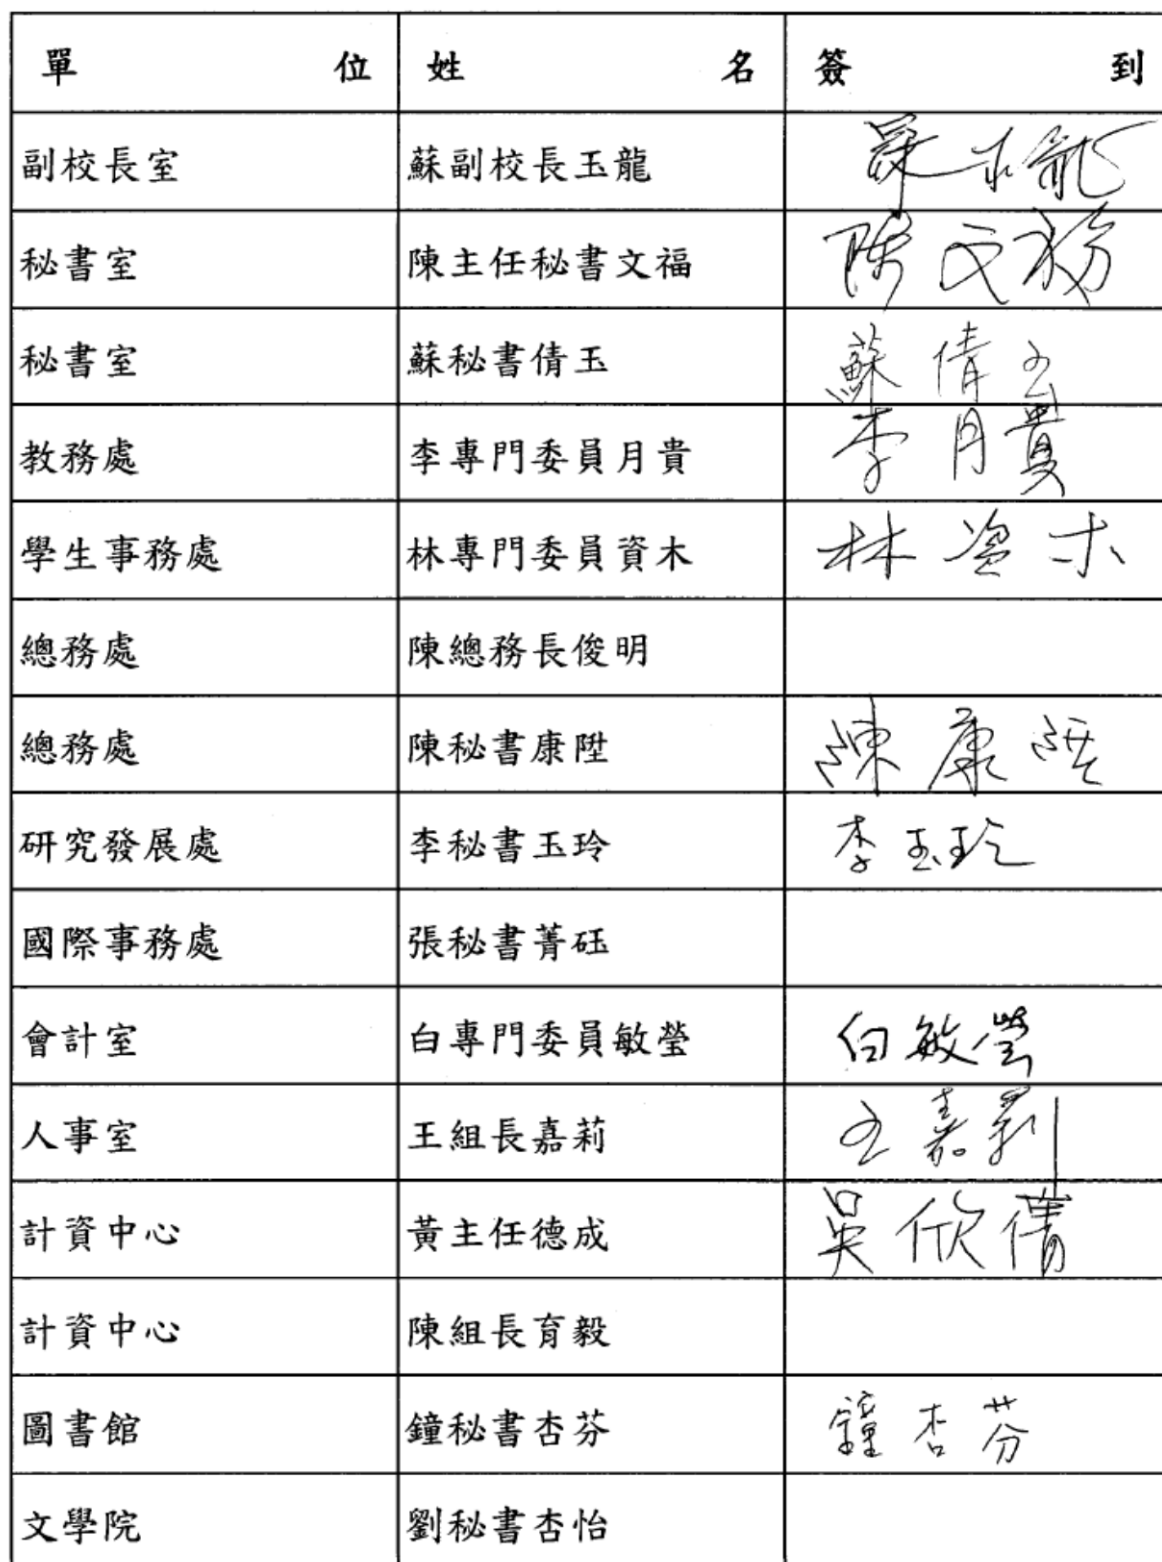 單位 姓名 簽到
副校長室 蘇副校長玉龍
秘書室 陳主任秘書文福 陳文福
秘書室 蘇秘書倩玉 蘇倩玉
教務處 李專門委員月貴 李月貴
學生事務處 林專門委員資木 林資木
總務處 陳總務長俊明
總務處 陳秘書康陞 陳康陞
研究發展處 李秘書玉玲 李玉玲
國際事務處 張秘書菁砡
會計室 白專門委員敏瑩 白敏瑩
人事室 王組長嘉莉 王嘉莉
計資中心 黃主任德成 吳欣倩
計資中心 陳組長育毅
圖書館 鐘秘書杏芬 鐘杏芬
文學院 劉秘書杏怡